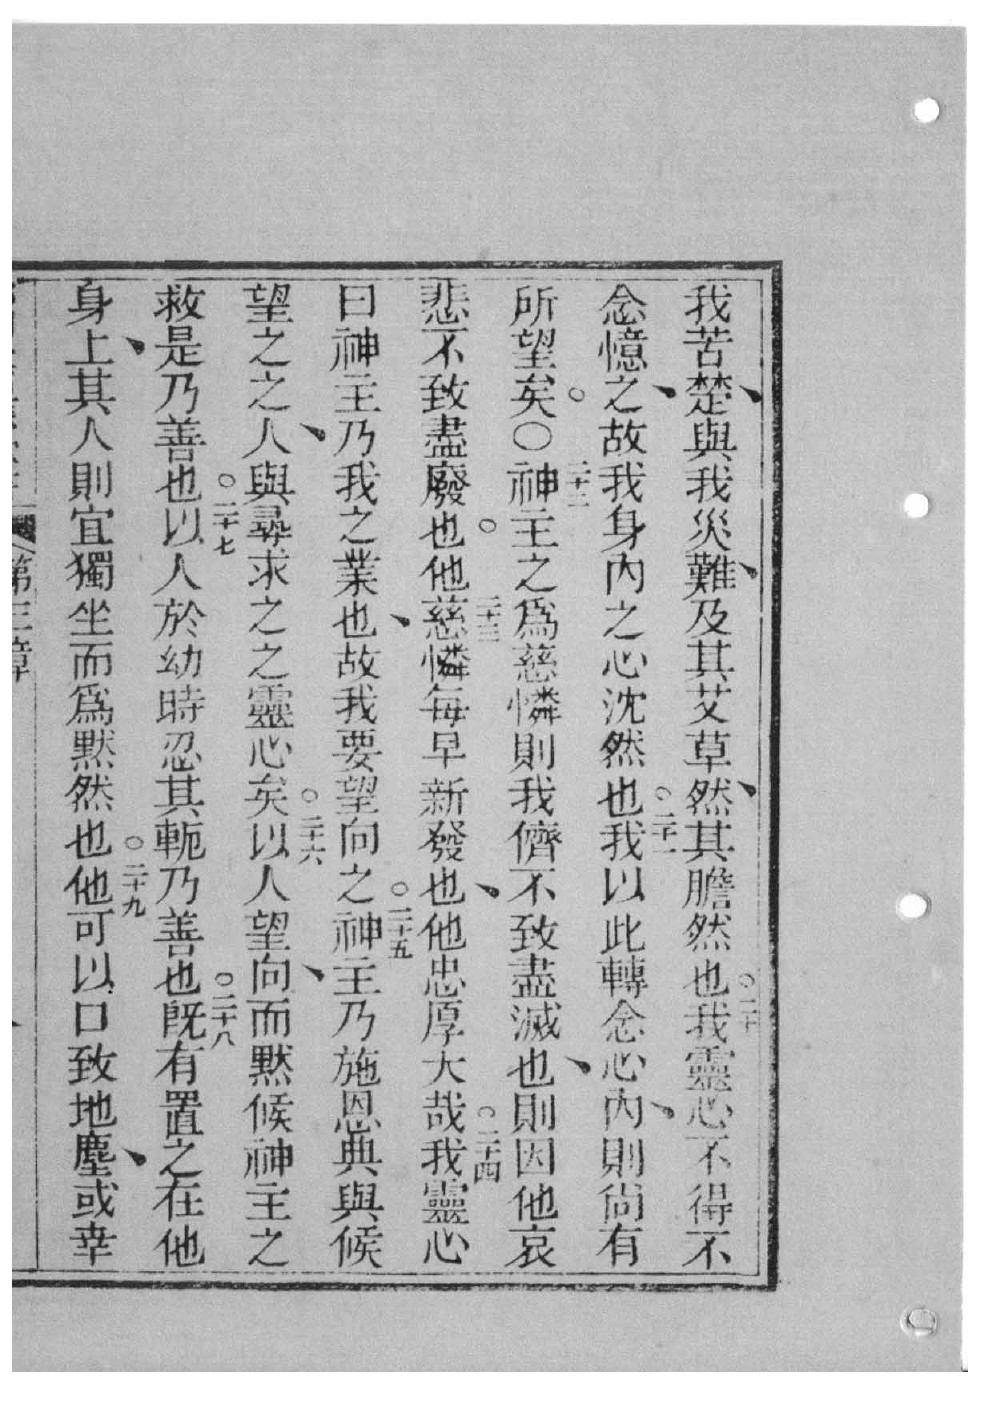 我苦楚與我災難及其艾草然其膽然也二十我靈心不得不
念憶之故我身內之心沈然也二十一我以此轉念心內則尚有
所望矣○二十二神主之為慈憐則我儕不致盡滅也則因他哀
悲不致盡廢也二十三他慈憐每早新發也他忠厚大哉二十四我靈心
曰神主乃我之業也故我要望向之二十五神主乃施恩典與候
望之之人與尋求之之靈心矣二十六以人望向而默候神主之
救是乃善也二十七以人於幼時忍其軛乃善也二十八既有置之在他
身上其人則宜獨坐而為默然也二十九他可以口致地塵或幸
第三章